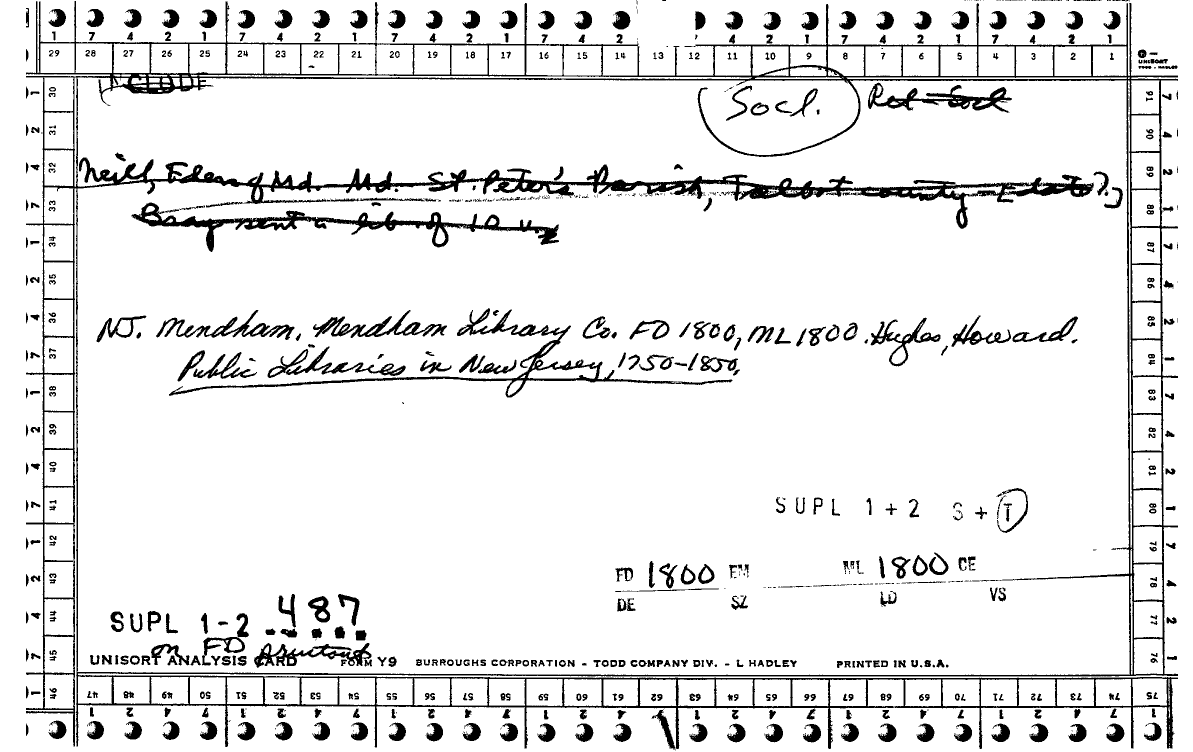 1 7 4 2 1 7 4 2 1 7 4 2 1 7 4 2 1 7 4 2 1 7 4 2 1 7 4 2 1
29 28 27 26 25 24 23 22 21 20 19 18 17 16 15 14 13 12 11 10 9 8 7 6 5 4 3 2 1
UNISORT
INCLUDE
Socl.
Neill, Eden of Md. Md. St. Peter's Parish, Talbot county - [date?]
Bray sent a lib. of 10 v.
NJ. Mendham. Mendham Library Co. FD 1800, ML 1800. Hughes, Howard.
Public Libraries in New Jersey, 1750-1850.
SUPL 1+2 S+T
FD 1800 EM ML 1800 CE
DE SZ LD VS
SUPL 1-2 487
on FD
UNISORT ANALYSIS CARD FORM Y9 BURROUGHS CORPORATION - TODD COMPANY DIV. - L HADLEY PRINTED IN U.S.A.
46 47 48 49 50 51 52 53 54 55 56 57 58 59 60 61 62 63 64 65 66 67 68 69 70 71 72 73 74 75